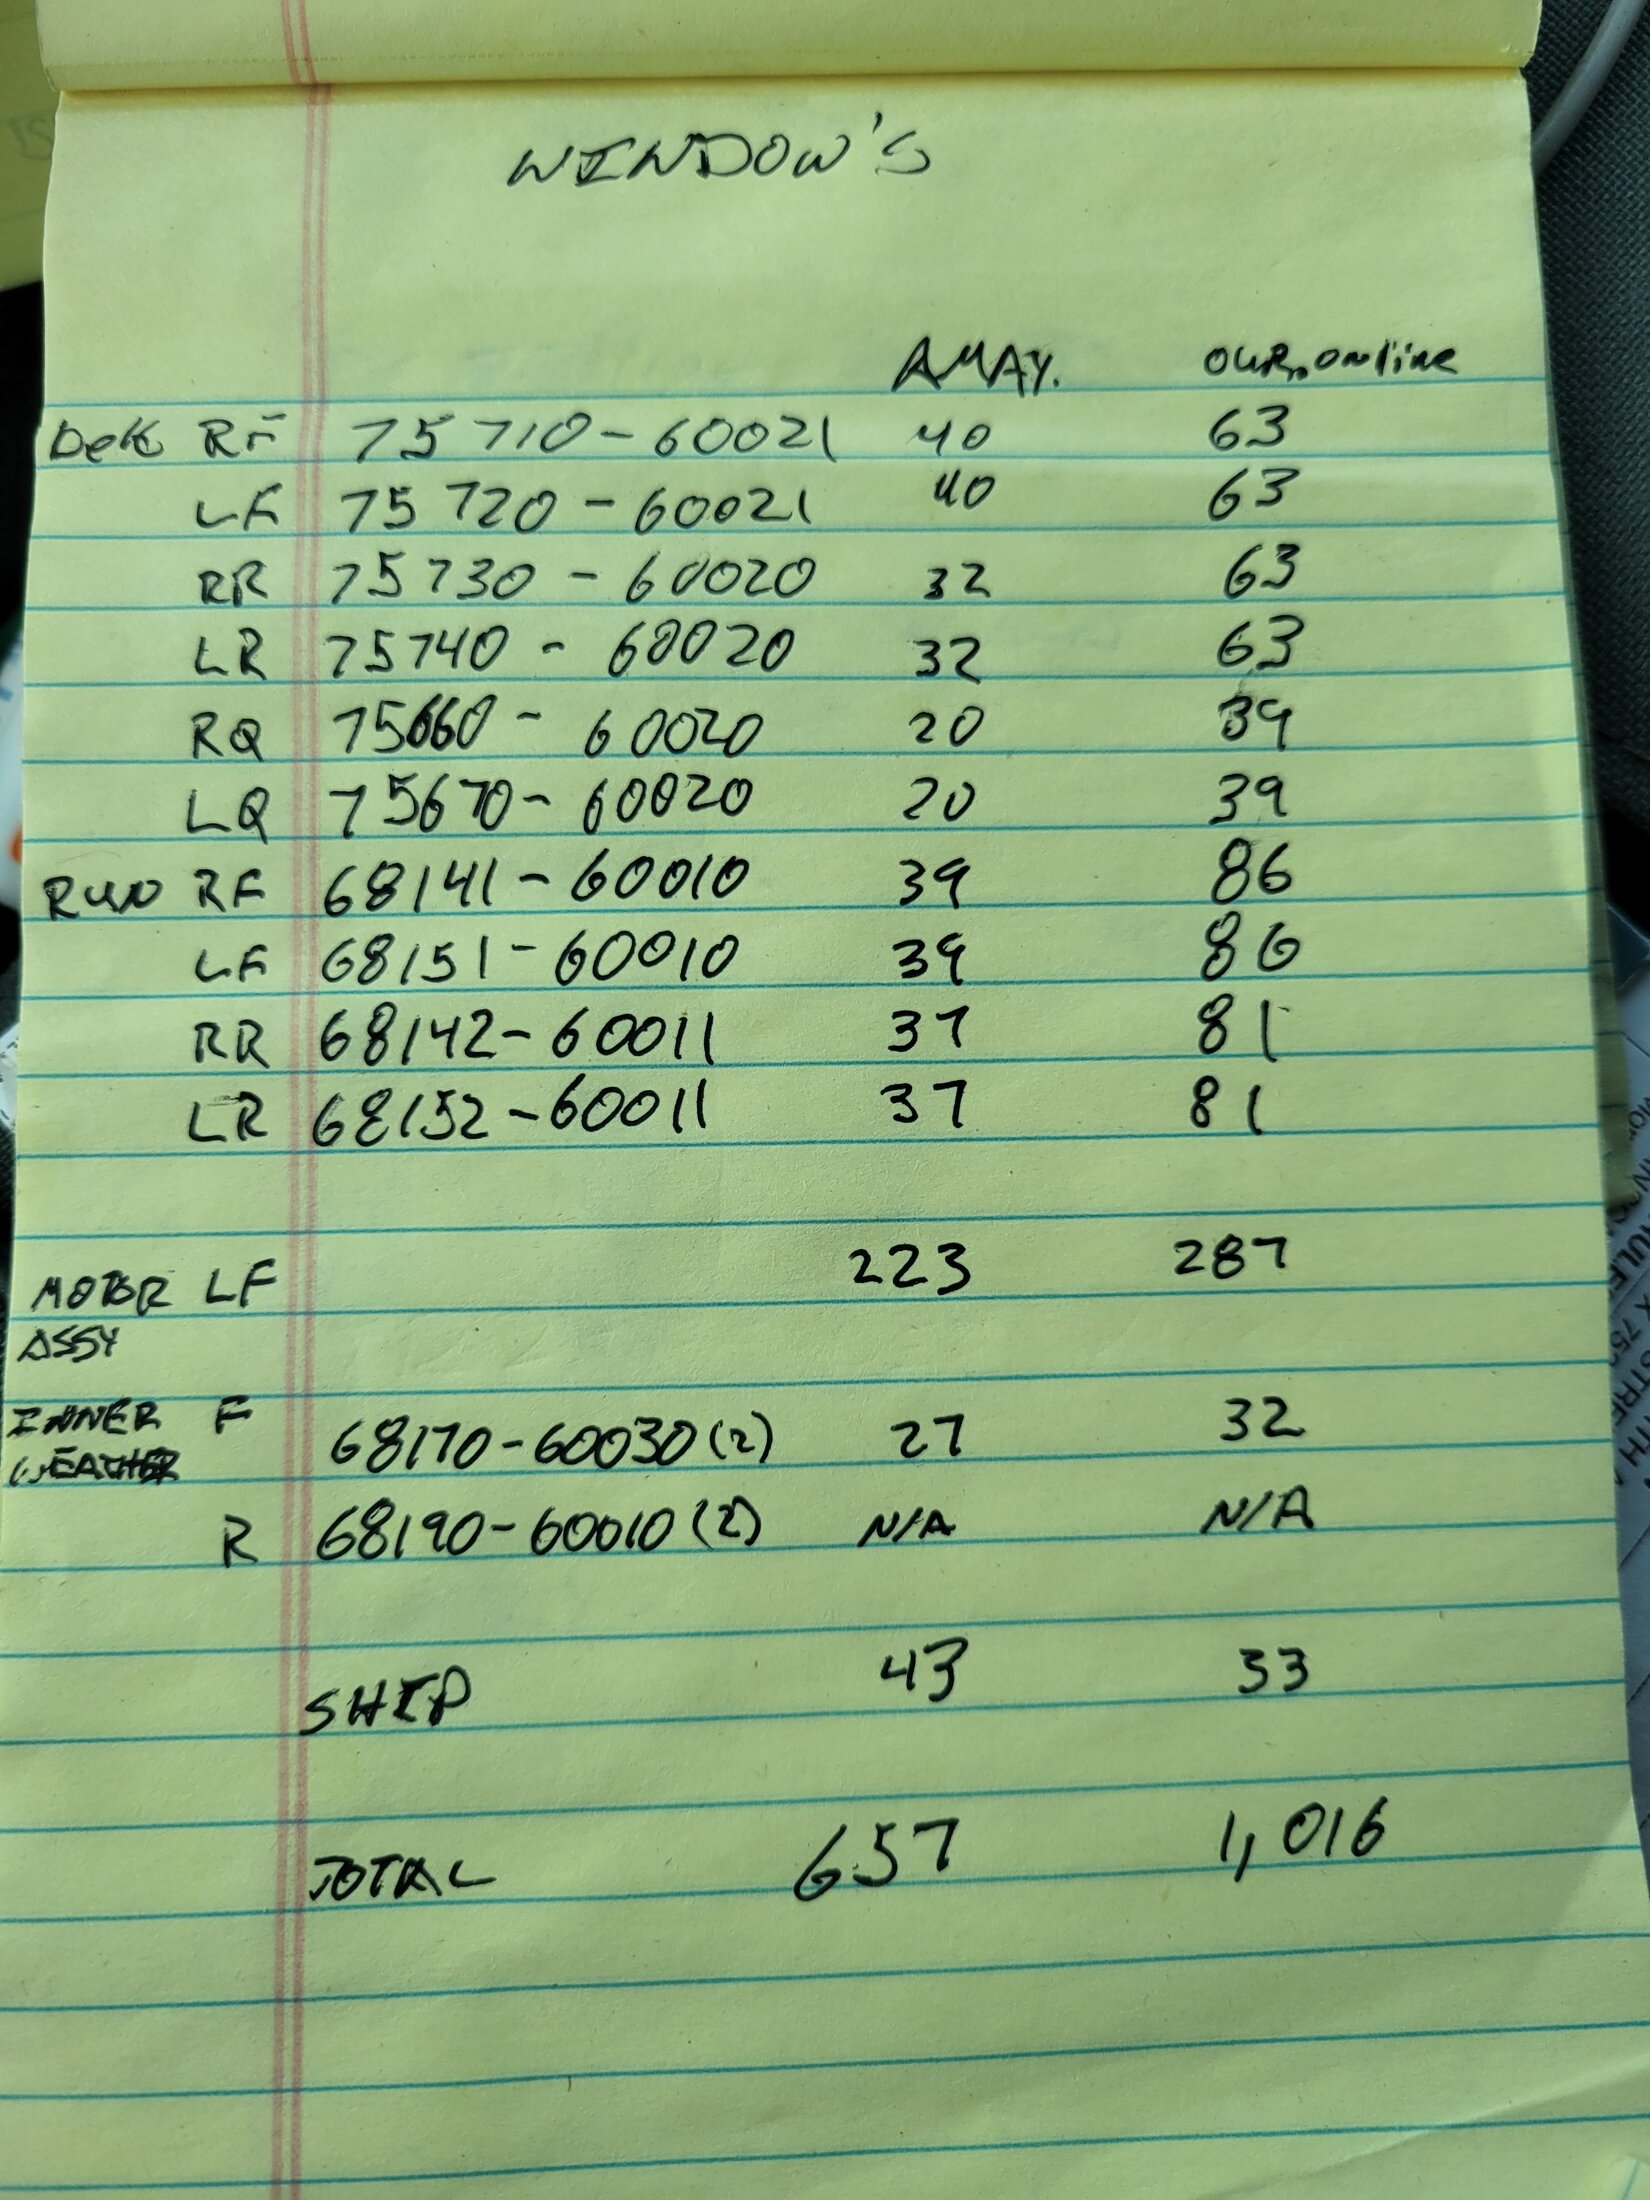 WINDOW'S
AMAY. OUR.online
Belt RF 75710-60021 40 63
LF 75720-60021 40 63
RR 75730-60020 32 63
LR 75740-60020 32 63
RQ 75660-60020 20 39
LQ 75670-60020 20 39
RUN RF 68141-60010 39 86
LF 68151-60010 39 86
RR 68142-60011 37 81
LR 68152-60011 37 81
MOTOR LF 223 287
ASSY
INNER F 68170-60030 (2) 27 32
WEATHER
R 68190-60010 (2) N/A N/A
SHIP 43 33
TOTAL 657 1,016